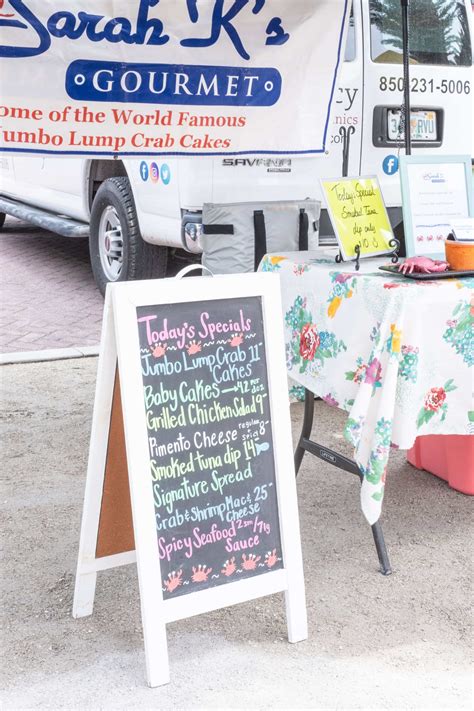 Sarah K's
GOURMET
ome of the World Famous
Jumbo Lump Crab Cakes
850-231-5006
cy
nics
SAVANA
RVU
Today's Special
Smoked Tuna
dip
10
Today's Specials
Jumbo Lump Crab 11
Cakes
Baby Cakes 42 PER DOZ
Grilled Chicken Salad 9
regular + spicy
Pimento Cheese 8
Smoked tuna dip 14
Signature Spread
Crab & Shrimp Mac & Cheese 25
Spicy Seafood 2sm/7lg
Sauce
LIFETIME